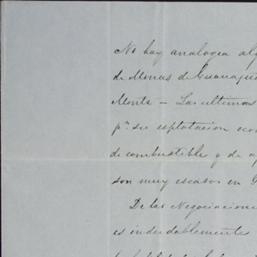 No hay analogia al
de Minas de Guanaju
Monte – Las ultimas
pa. su esplotacion eco
de combustible y de a
son muy escasos en G
De las Negociacione
es indudablemente